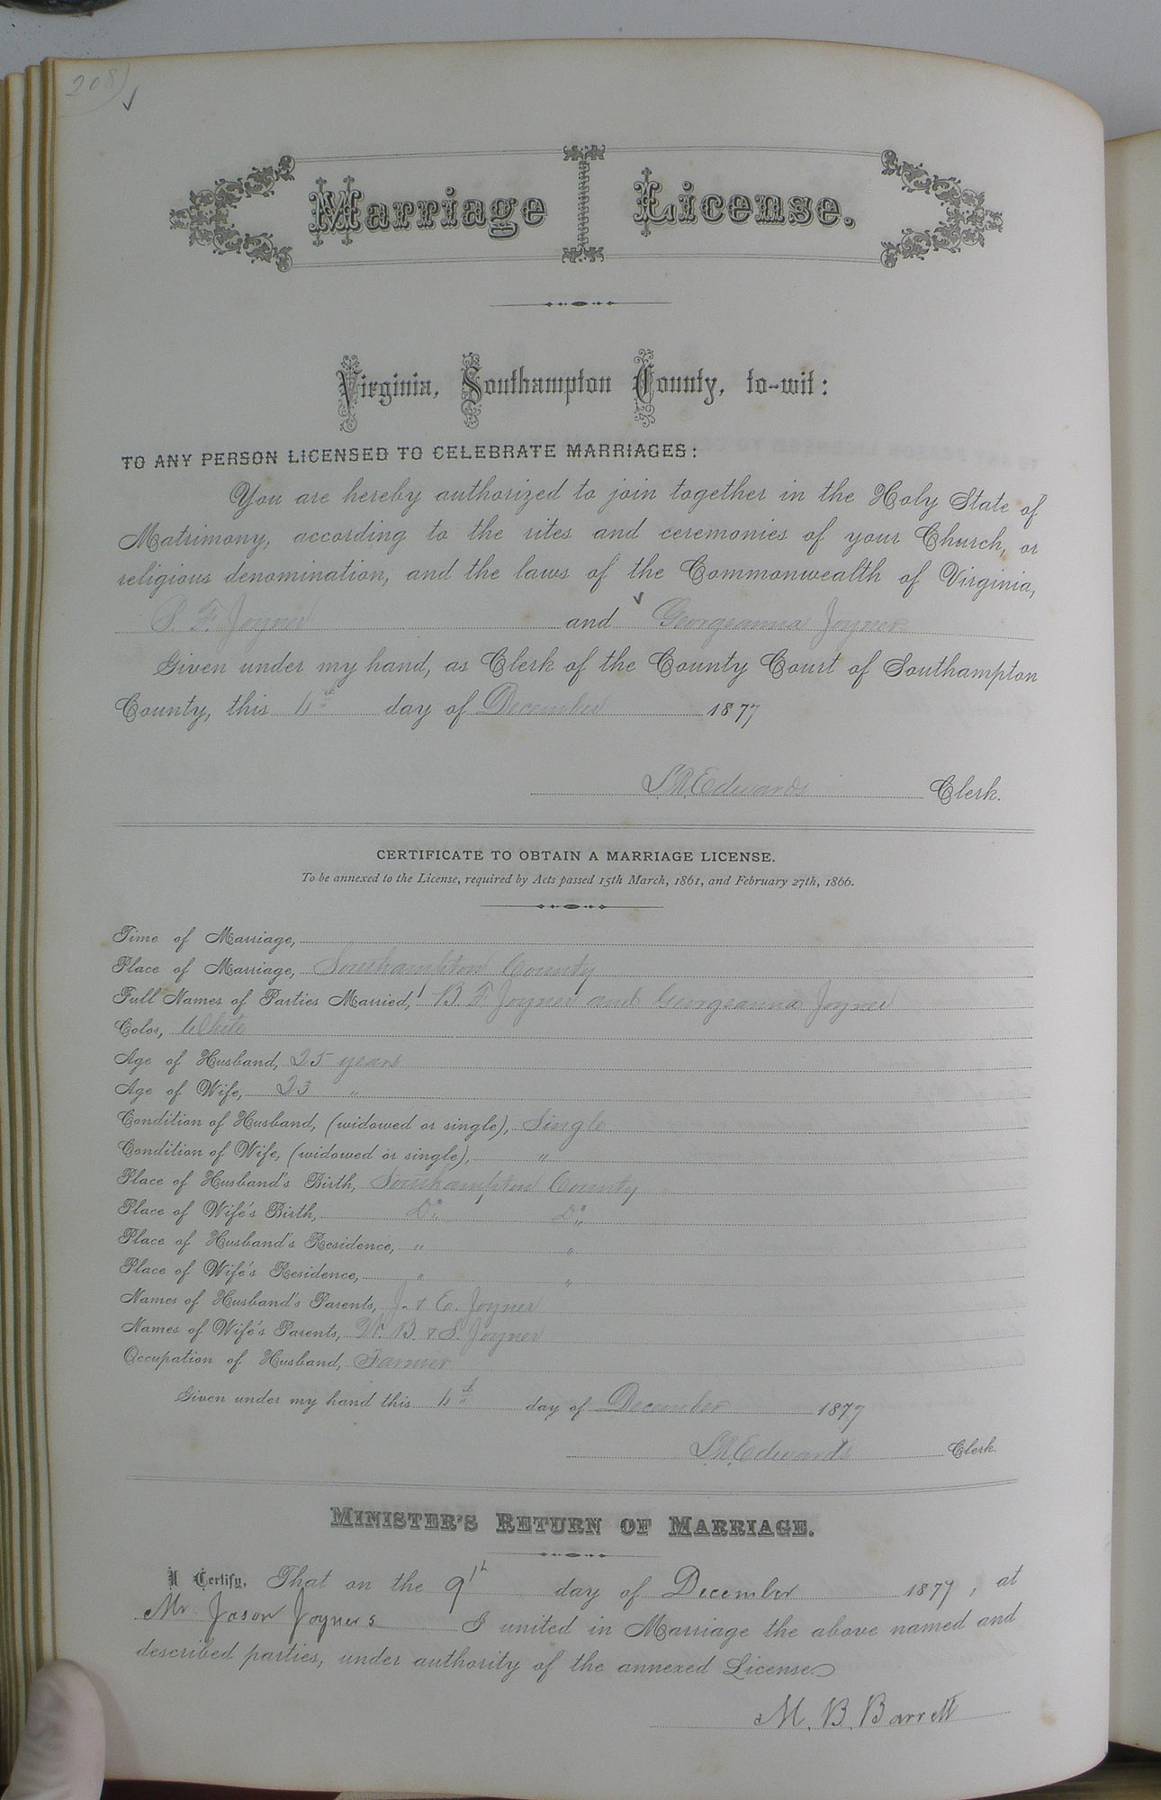 208)
Marriage License.
Virginia, Southampton County, to-wit:
TO ANY PERSON LICENSED TO CELEBRATE MARRIAGES:
You are hereby authorized to join together in the Holy State of
Matrimony, according to the rites and ceremonies of your Church, or
religious denomination, and the laws of the Commonwealth of Virginia,
F. Joyner and Georgeanna Joyner
Given under my hand, as Clerk of the County Court of Southampton
County, this 4th day of December 1877
L.R. Edwards Clerk.
CERTIFICATE TO OBTAIN A MARRIAGE LICENSE.
To be annexed to the License, required by Acts passed 15th March, 1861, and February 27th, 1866.
Time of Marriage,
Place of Marriage, Southampton County
Full Names of Parties Married, B F Joyner and Georgeanna Joyner
Color, White
Age of Husband, 25 years
Age of Wife, 23 "
Condition of Husband, (widowed or single), Single
Condition of Wife, (widowed or single), "
Place of Husband's Birth, Southampton County
Place of Wife's Birth, Do Do
Place of Husband's Residence, " "
Place of Wife's Residence, " "
Names of Husband's Parents, J. & E. Joyner
Names of Wife's Parents, B. & S. Joyner
Occupation of Husband, Farmer
Given under my hand this 4th day of December 1877
L.R. Edwards Clerk.
MINISTER'S RETURN OF MARRIAGE.
I Certify, That on the 9th day of December 1877, at
Mr Jason Joyners I united in Marriage the above named and
described parties, under authority of the annexed License
M. B. Barrett